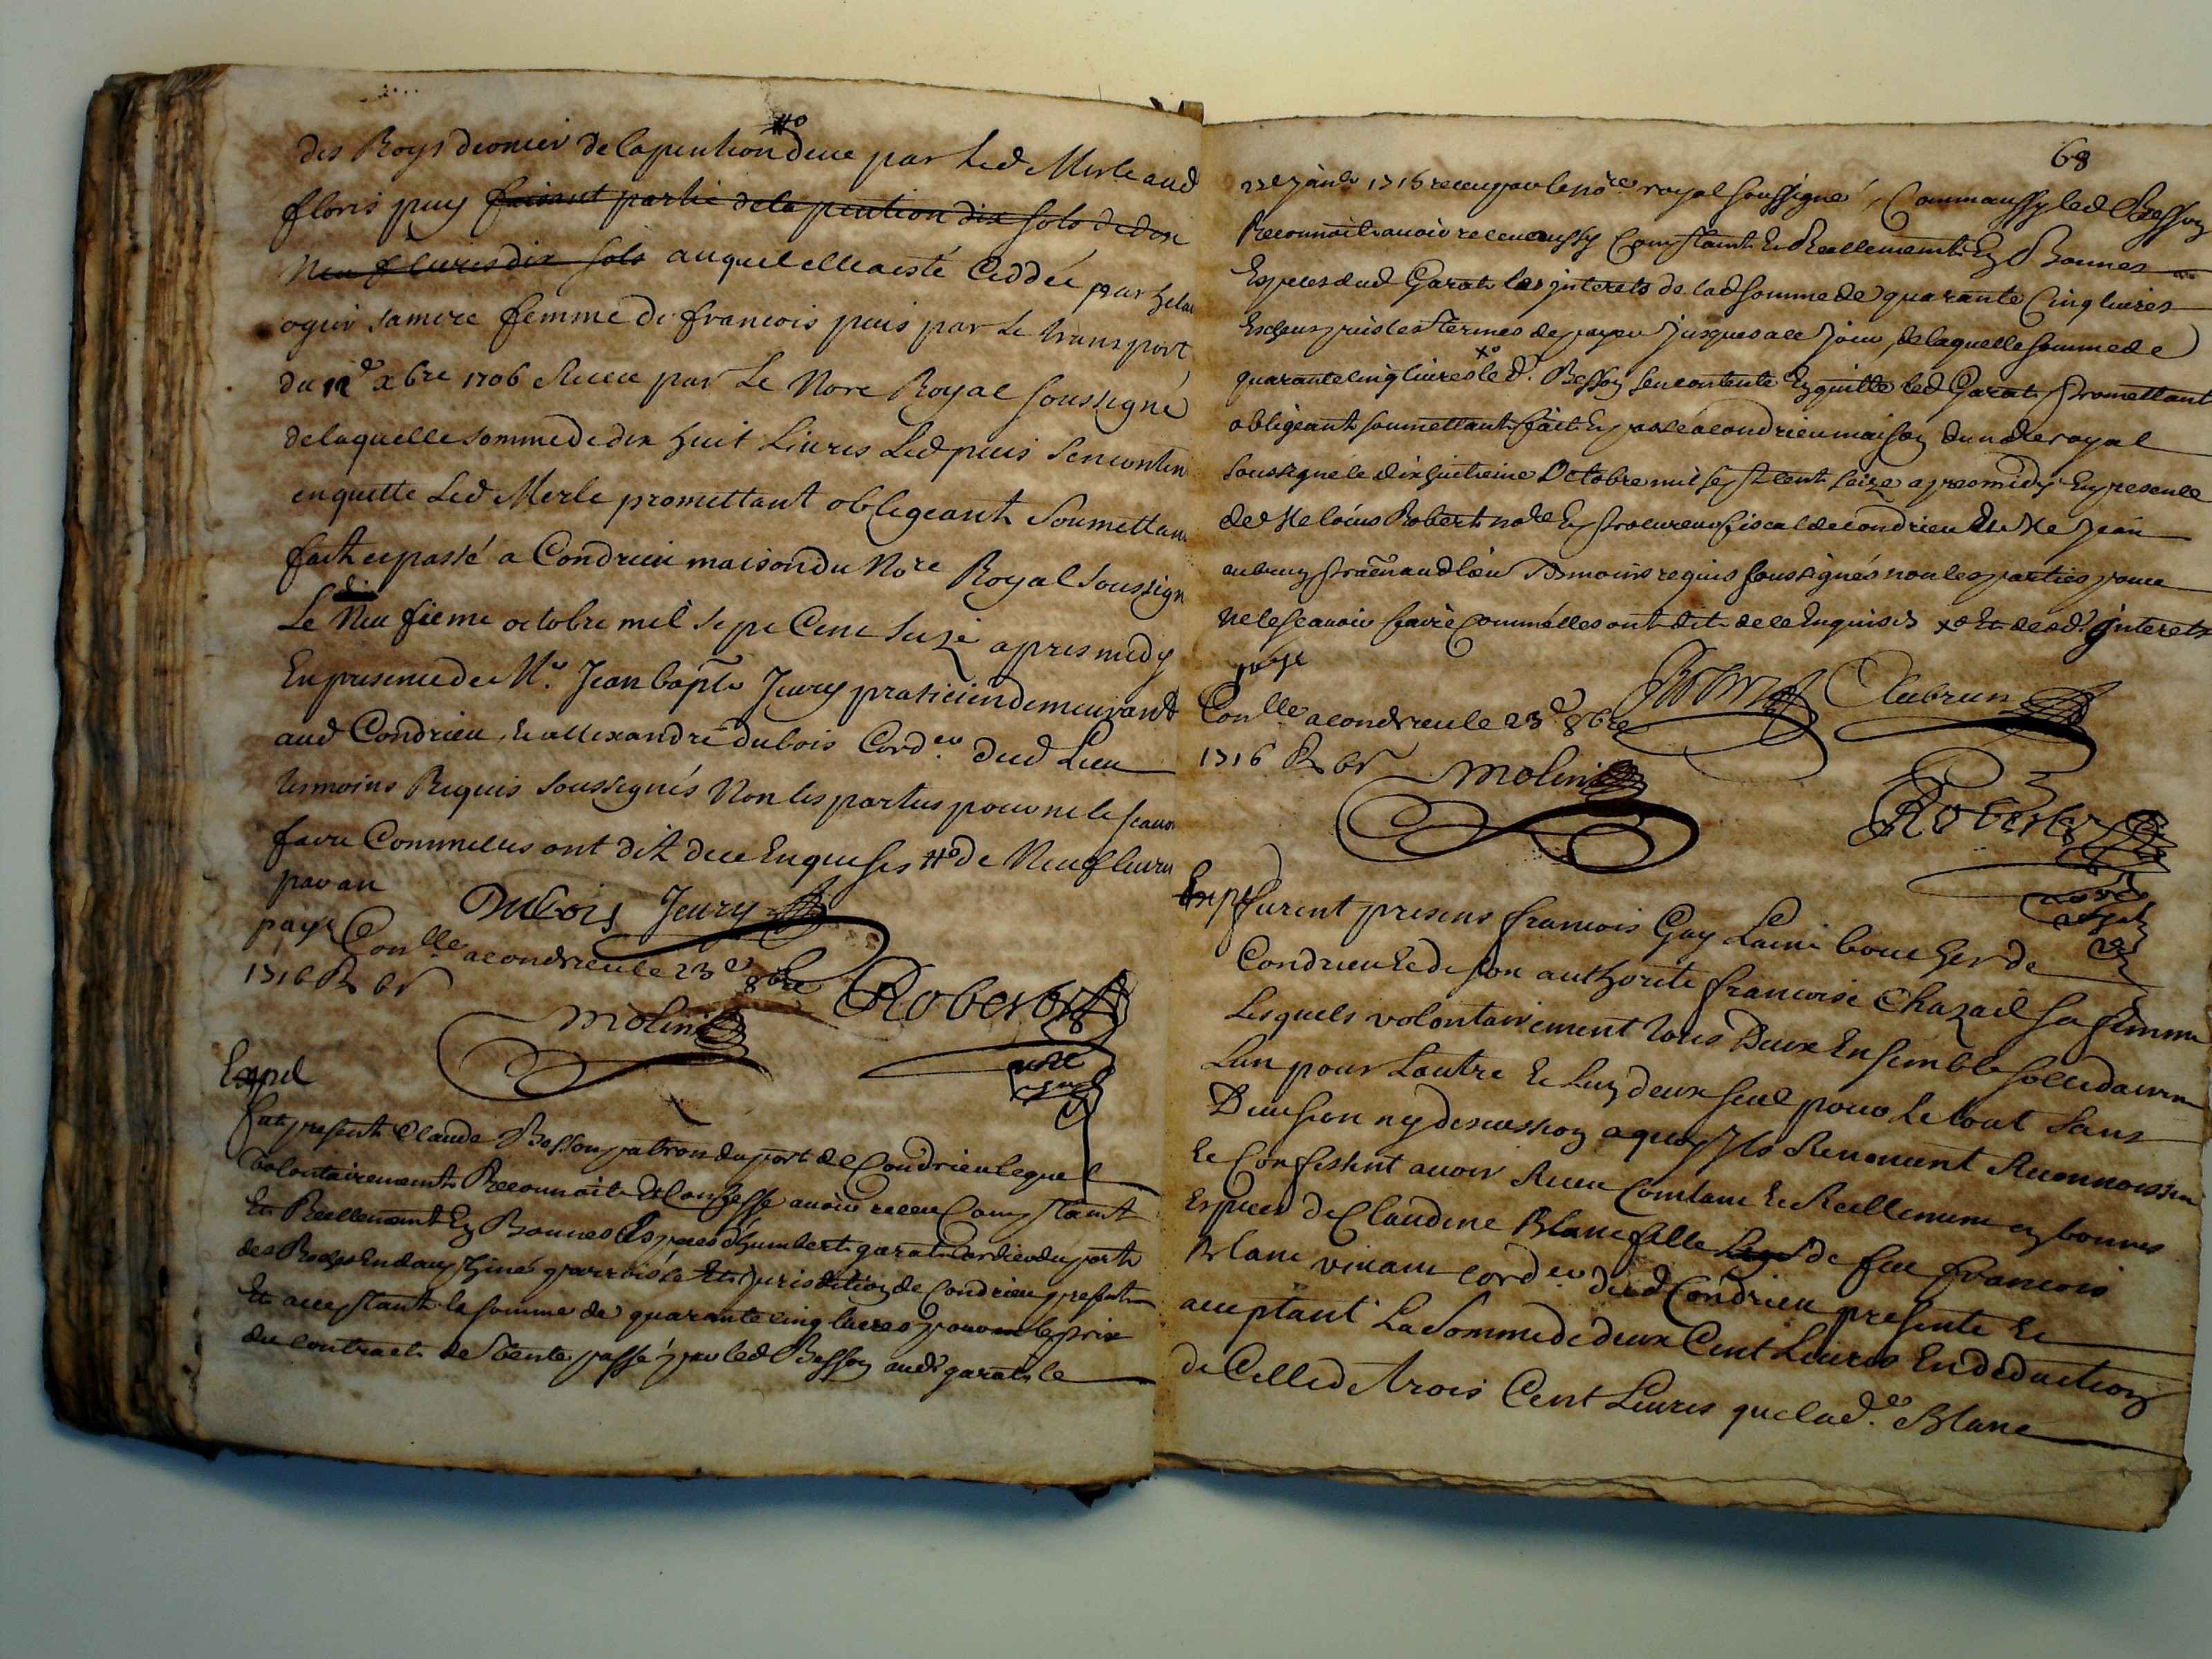 des Roys dernier de la pention #o deue par Led Merle aud
floris puy faisant partie de la pention dix sols de dix
Neuf livres dix sols auquel elle a esté Ceddée par
ogier sa mere femme de francois puis par Le transport
du 12e xbre 1706 Receu par Le Nore Royal soussigné
de laquelle somme de dix huit Livres Led puis sencontente
en quitte Led Merle promettant obligeant Soumettant
fait et passé a Condrieu maison du Nore Royal soussigné
Le dix Neufieme octobre mil sept Cent seize apres midy
En presence de Mr. Jean bapte Jeury praticien demeurant
aud Condrieu, et allexandre dubois Corder dud Lieu
tesmoins Requis soussignés Non les parties pour ne le scavoir
faire Comme elles ont dit de ce Enquises #o de Neuf livres
par an
Dubois Jeury
paye Conlle a condrieu le 23e 8bre
1716 R 6s
molin
Robert
nore
royal
Exped
fut present Claude Besson patron du port de Condrieu lequel
volontairement Reconnoit Et Confesse avoir receu Comptant
Et Reellement En Bonnes Especes d'humbert garat Cordier du port
des Roches En dauphiné parroisse Et jurisdition de Condrieu present
Et acceptant la somme de quarante cinq livres pour le prix
du contract de Vente passé par led Besson aud garat le
68
23e janr 1716 receu par le nore royal soussigné, Comm aussy led Besson
Reconnoit avoir receu aussy Comptant Et Reellement En Bonnes
Especes dud Garat les interets de lad somme de quarante Cinq livres
Escheus puis les termes de payer jusques a ce jour, de laquelle somme de
quarante cinq livres xo le d. Besson sen contente En quitte led Garat promettant
obligeant soumettant fait Et passé a condrieu maison du nore royal
soussigné le dix huitieme Octobre mil sept cent seize apres midy En presence
de Me loüis Robert nore Et procureur fiscal de condrieu Et Me Jean
aubrun praēn aud lieu Temoins requis soussignés non les parties pour
ne le scavoir faire comm'elles ont dit de ce Enquises xo Et desd. interets
paye
Conlle a condrieu le 23e 8bre
Robert Aubrun
1716 R 6s
molin
Robert
nore
royal
Exp
furent presens francois Gay Laine boucher de
Condrieu Et de son authorité francoise Chazail sa femme
Lesquels volontairement tous Deux Ensemble sollidairement
Lun pour Lautre Et Lun deux seul pour Le tout sans
Division ny discussion a quoy Ils Renoncent Reconnoissent
Et Confessent avoir Receu Comtant Et Reellement en bonnes
Especes de Claudine Blanc fille de feu francois
Blanc vivant corder dud Condrieu presente Et
acceptant La Somme de deux Cent Livres En deduction
de Celle de trois Cent Livres que lad.e Blanc